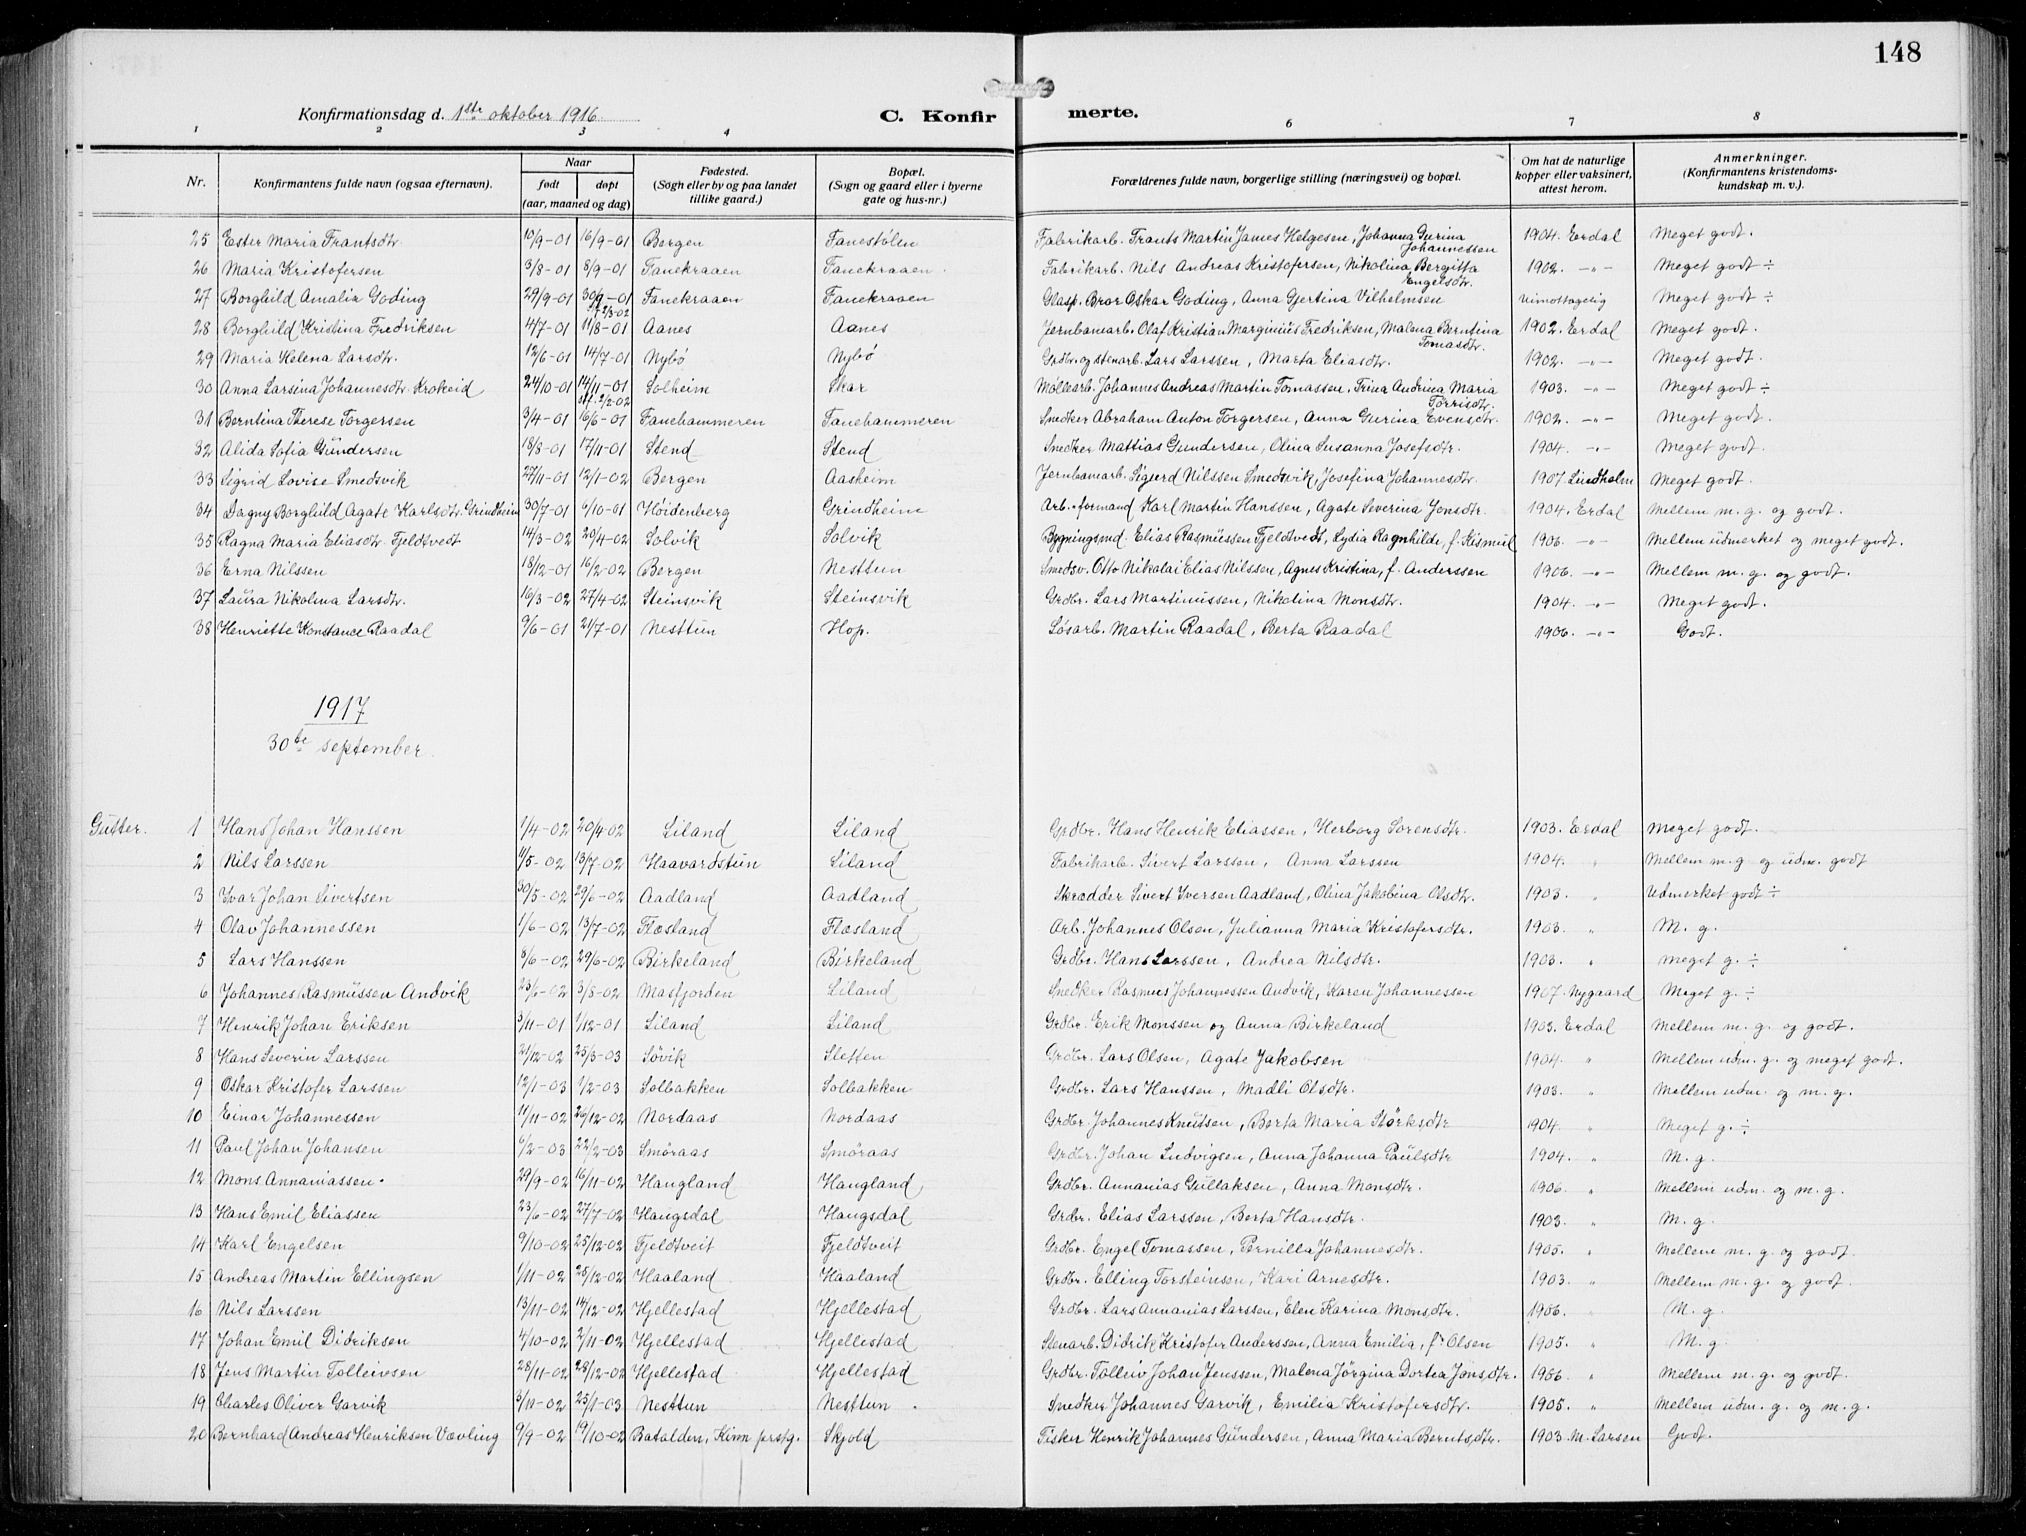 148
Konfirmationsdag d. 1ste oktober 1916.
C. Konfir merte.
1 2 3 4 6 7 8
Nr.
Konfirmantens fulde navn (ogsaa efternavn).
Naar
født døpt
(aar, maaned og dag)
Fødested.
(Sogn eller by og paa landet
tillike gaard.)
Bopæl.
(Sogn og gaard eller i byerne
gate og hus-nr.)
Forældrenes fulde navn, borgerlige stilling (næringsvei) og bopæl.
Om hat de naturlige
kopper eller vaksinert,
attest herom.
Anmerkninger.
(Konfirmantens kristendoms-
kundskap m. v.).
25 Ester Maria Frantsdtr. 10/9-01 16/9-01 Bergen Fanestølen Fabrikarb. Frants Martin James Helgesen, Johanna Gurina Johannessen 1904. Erdal Meget godt.
26 Maria Kristofersen 3/8-01 8/9-01 Fanekraaen Fanekraaen Fabrikarb. Nils Andreas Kristofersen, Nikolina Bergitta Engelsdtr. 1902. -"- Meget godt ÷
27 Borghild Amalia Goding 29/9-01 30/9-01 2/3-02 Fanekraaen Fanekraaen Glasp. Bror Oskar Goding, Anna Gjertina Vilhelmsen Uimottagelig Meget godt ÷
28 Borghild Kristina Fredriksen 4/7-01 11/8-01 Aanes Aanes Jernbanearb. Olaf Kristian Marginius Fredriksen, Malena Berntina Tomasdtr. 1902. Erdal Meget godt.
29 Maria Helena Larsdtr. 12/6-01 14/7-01 Nybø Nybø Grdbr. og stenarb. Lars Larssen, Marta Eliasdtr. 1902. -"- Meget godt.
30 Anna Larsina Johannesdtr. Krokeid 24/10-01 14/11-01 st. 2/2-02 Solheim Skar Møllearb. Johannes Andreas Martin Tomassen, Trina Andrina Maria Torrisdtr. 1903. -"- Meget godt ÷
31 Berntina Therese Torgersen 3/4-01 16/6-01 Fanehammeren Fanehammeren Snedker Abraham Anton Torgersen, Anna Gurina Evensdtr. 1902. -"- Meget godt.
32 Alida Sofia Gundersen 18/8-01 17/11-01 Stend Stend Snedker Mattias Gundersen, Olina Susanna Josefsdtr. 1904. -"- Meget godt.
33 Sigrid Lovise Smedsvik 27/11-01 12/1-02 Bergen Aasheim Jernbanearb. Sigurd Nilssen Smedsvik, Josefina Johannesdtr. 1907. Lindholm Meget godt.
34 Dagny Borghild Agate Karlsdtr. Grindheim 30/7-01 6/10-01 Høidenberg Grindheim Arb.-formand Karl Martin Hanssen, Agate Severina Jensdtr. 1904. Erdal Mellem m. g. og godt.
35 Ragna Maria Eliasdtr. Fjeldtvedt 14/3-02 20/4-02 Solvik Solvik Bygningsmd. Elias Rasmussen Fjeldtvedt, Lydia Ragnhilde, f. Kismul 1906. -"- Mellem udmerket og meget godt.
36 Erna Nilssen 18/12-01 16/2-02 Bergen Nesttun Smedsv. Otto Nikolai Elias Nilssen, Agnes Kristina, f. Anderssen 1906. -"- Mellem m. g. og godt.
37 Laura Nikolina Larsdtr. 16/3-02 27/4-02 Steinsvik Steinsvik Grdbr. Lars Martinussen, Nikolina Monsdtr. 1904. -"- Meget godt.
38 Henriette Konstance Raadal 9/6-01 21/7-01 Nesttun Hop. Løsarb. Martin Raadal, Berta Raadal 1906. -"- Godt.
1917
30te september.
Gutter. 1 Hans Johan Hanssen 1/4-02 20/4-02 Liland Liland Grdbr. Hans Henrik Eliassen, Herborg Sorensdtr. 1903. Erdal Meget godt.
2 Nils Larssen 11/5-02 13/7-02 Haavardstun Liland Fabrikarb. Sivert Larssen, Anna Larssen 1904. " Mellem m. g og udm. godt
3 Ivar Johan Sivertsen 30/5-02 29/6-02 Aadland Aadland Skrædder Sivert Iversen Aadland, Olina Jakobina Olsdtr. 1903. " Udmerket godt ÷
4 Olav Johannessen 1/6-02 13/7-02 Flesland Flesland Arb. Johannes Olsen, Julianna Maria Kristofersdtr. 1903. " M. g.
5 Lars Hanssen 8/6-02 29/6-02 Birkeland Birkeland Grdbr. Hans Larssen, Andrea Nilsdtr. 1903. " meget g. ÷
6 Johannes Rasmussen Andvik 23/6-02 3/8-02 Masfjorden Liland Snedker Rasmus Johannessen Andvik, Karen Johannessen 1907. Nygaard Meget g. ÷
7 Henrik Johan Eriksen 3/11-01 1/12-01 Liland Liland Grdbr. Erik Monssen og Anna Birkeland 1903. Erdal Mellem m. g. og godt.
8 Hans Severin Larssen 21/12-02 25/3-03 Søvik Sletten Grdbr. Lars Olsen, Agate Jakobsen 1904. " Mellem udm. g. og meget godt.
9 Oskar Kristofer Larssen 12/1-03 1/2-03 Solbakken Solbakken Grdbr. Lars Hanssen, Madli Olsdtr. 1903. " Mellem udm. og m. g.
10 Einar Johannessen 11/11-02 26/12-02 Nordaas Nordaas Grdbr. Johannes Knutsen, Berta Maria Størksdtr 1904. " Meget g. ÷
11 Paul Johan Johansen 6/2-03 22/2-03 Smøraas Smøraas Grdbr. Johan Ludvigsen, Anna Johanna Paulsdtr 1904. " M. g.
12 Mons Annaniassen. 29/9-02 16/11-02 Haugland Haugland Grdbr. Annanias Gullaksen, Anna Monsdtr. 1906. " Mellem udm. og m. g.
13 Hans Emil Eliassen 23/6-02 27/7-02 Haugsdal Haugsdal Grdbr. Elias Larssen, Berta Hansdtr. 1903. " M. g.
14 Karl Engelsen 9/10-02 25/12-02 Fjeldtveit Fjeldtveit Grdbr. Engel Tomassen, Pernilla Johannesdtr. 1905. " Mellem m. g. og godt.
15 Andreas Martin Ellingsen 1/11-02 25/12-02 Haaland Haaland Grdbr. Elling Torsteinsen, Kari Arnesdtr. 1903. " Mellem m. g. og godt.
16 Nils Larssen 13/11-02 14/12-02 Hjellestad Hjellestad Grdbr. Lars Annanias Larssen, Elen Karina Monsdtr. 1906. " M. g.
17 Johan Emil Didriksen 4/10-02 2/11-02 Hjellestad Hjellestad Stenarb. Didrik Kristofer Anderssen, Anna Emilia, f. Olsen 1905. " M. g.
18 Jens Martin Tolleivsen 28/11-02 28/12-02 Hjellestad Hjellestad Grdbr. Tolleiv Johan Jenssen, Malena Jørgina Dortea Jonsdtr. 1906 " Mellem m. g. og godt.
19 Charles Oliver Garvik 3/11-02 25/1-03 Nesttun Nesttun. Snedker Johannes Garvik, Emilia Kristofersdtr. 1905. " Mellem udm. g. og m. g.
20 Bernhard Andreas Henriksen Vævling 9/9-02 19/10-02 Batalden, Kinn prstg. Skjold Fisker Henrik Johannes Gundersen, Anna Maria Berntsdtr. 1903 M. Larsen Godt.